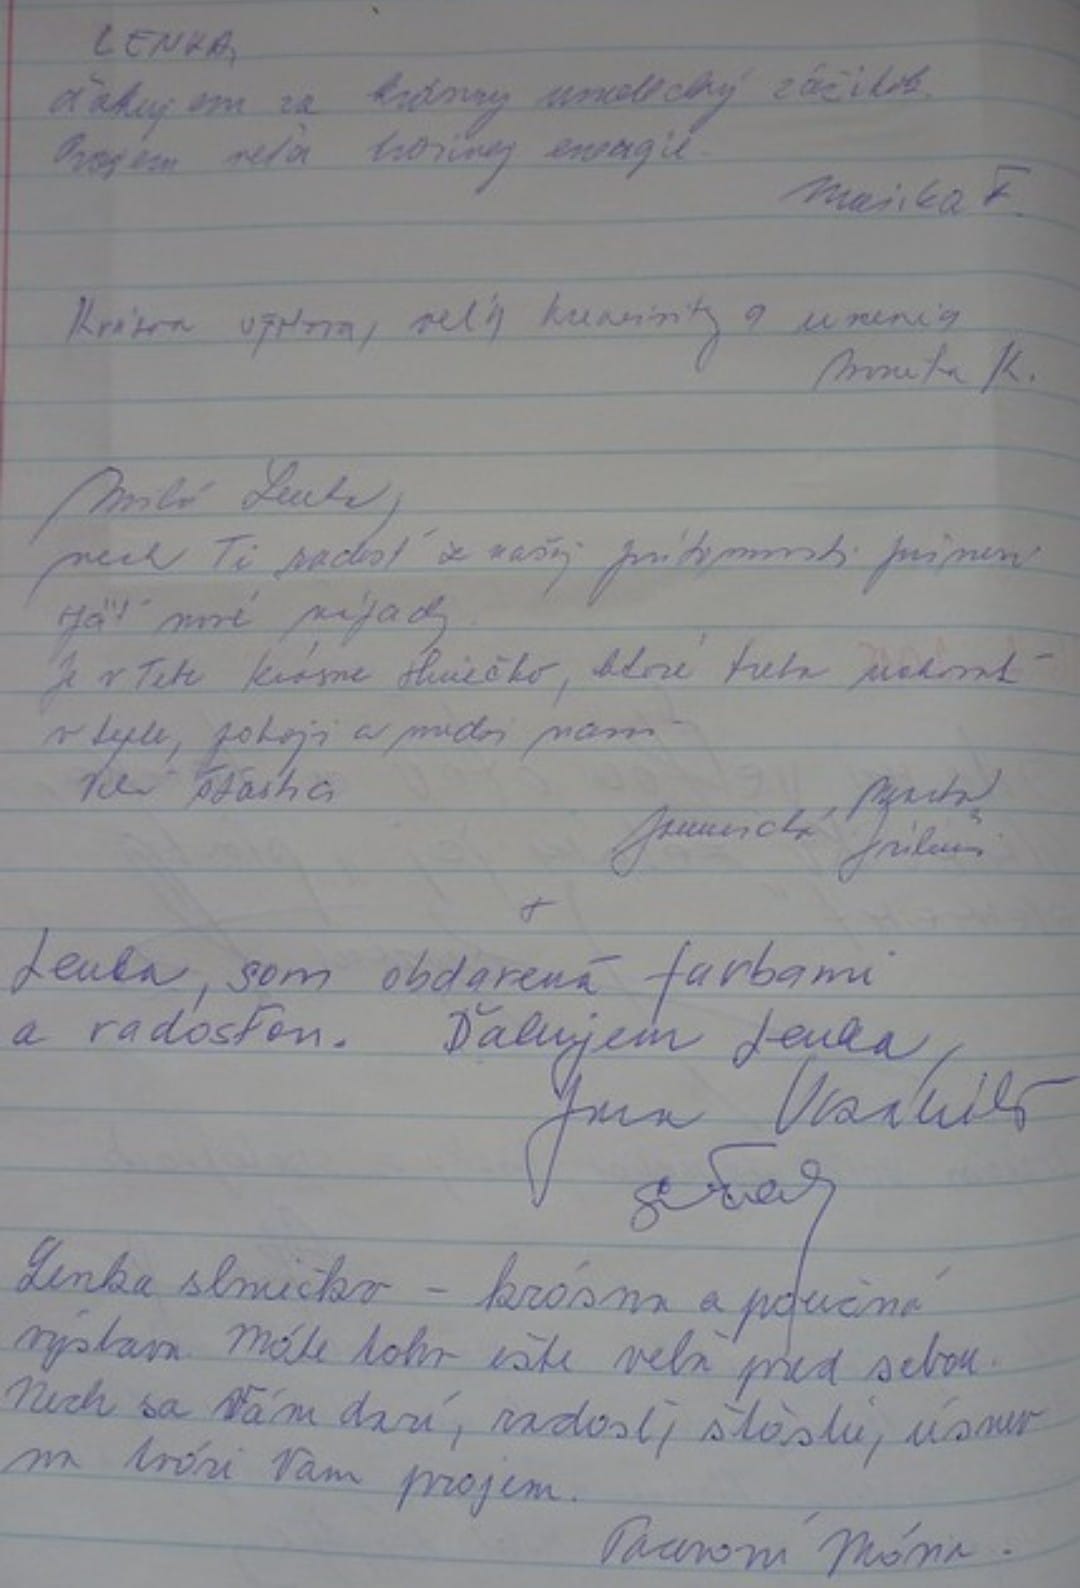 LENKA,
ďakujem za krásny umelecký zážitok.
Prajem veľa tvorivej energie.
Marika F.
Krásna výstava, veľa kreativity a umenia
K.
Milá Lenka,
nech Ti radosť z našej prítomnosti prinesie
nové nápady.
Je v Tebe krásne slniečko, ktoré treba
v tele, pokoji a medzi nami
Veľa šťastia
Lenka, som obdarená farbami
a radosťou. Ďakujem Lenka,
Jana
Lenka slniečko - krásna a poučná
výstava. Máte toho ešte veľa pred sebou.
Nech sa Vám darí, radosť, šťastie, úsmev
na tvári Vám prajem.
Mária.